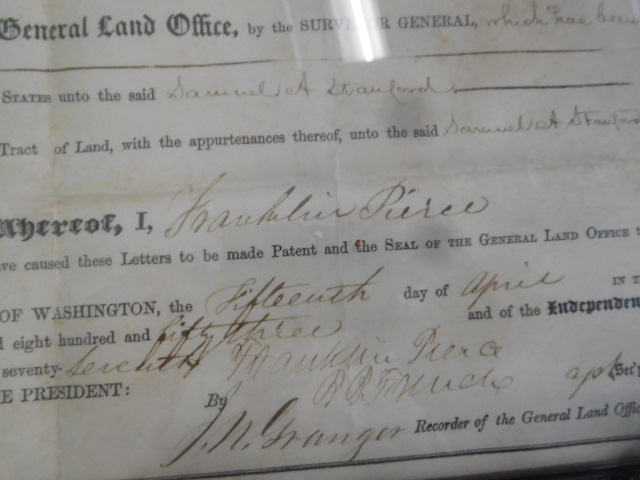 General Land Office, by the SURVEYOR GENERAL, which has been
STATES unto the said Samuel A Stanford
Tract of Land, with the appurtenances thereof, unto the said Samuel A Stanford
Whereof, I, Franklin Pierce
ve caused these Letters to be made Patent and the SEAL OF THE GENERAL LAND OFFICE t
OF WASHINGTON, the Fifteenth day of April IN T
d eight hundred and fifty three and of the Independen
seventy-seventh Franklin Pierce
E PRESIDENT:
By B. B. French Sec'y
J. N. Granger Recorder of the General Land Offic